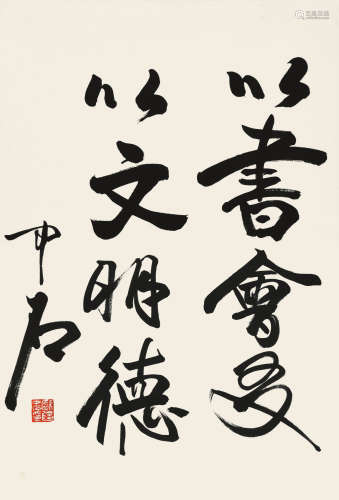 以書會友
以文明德
中石